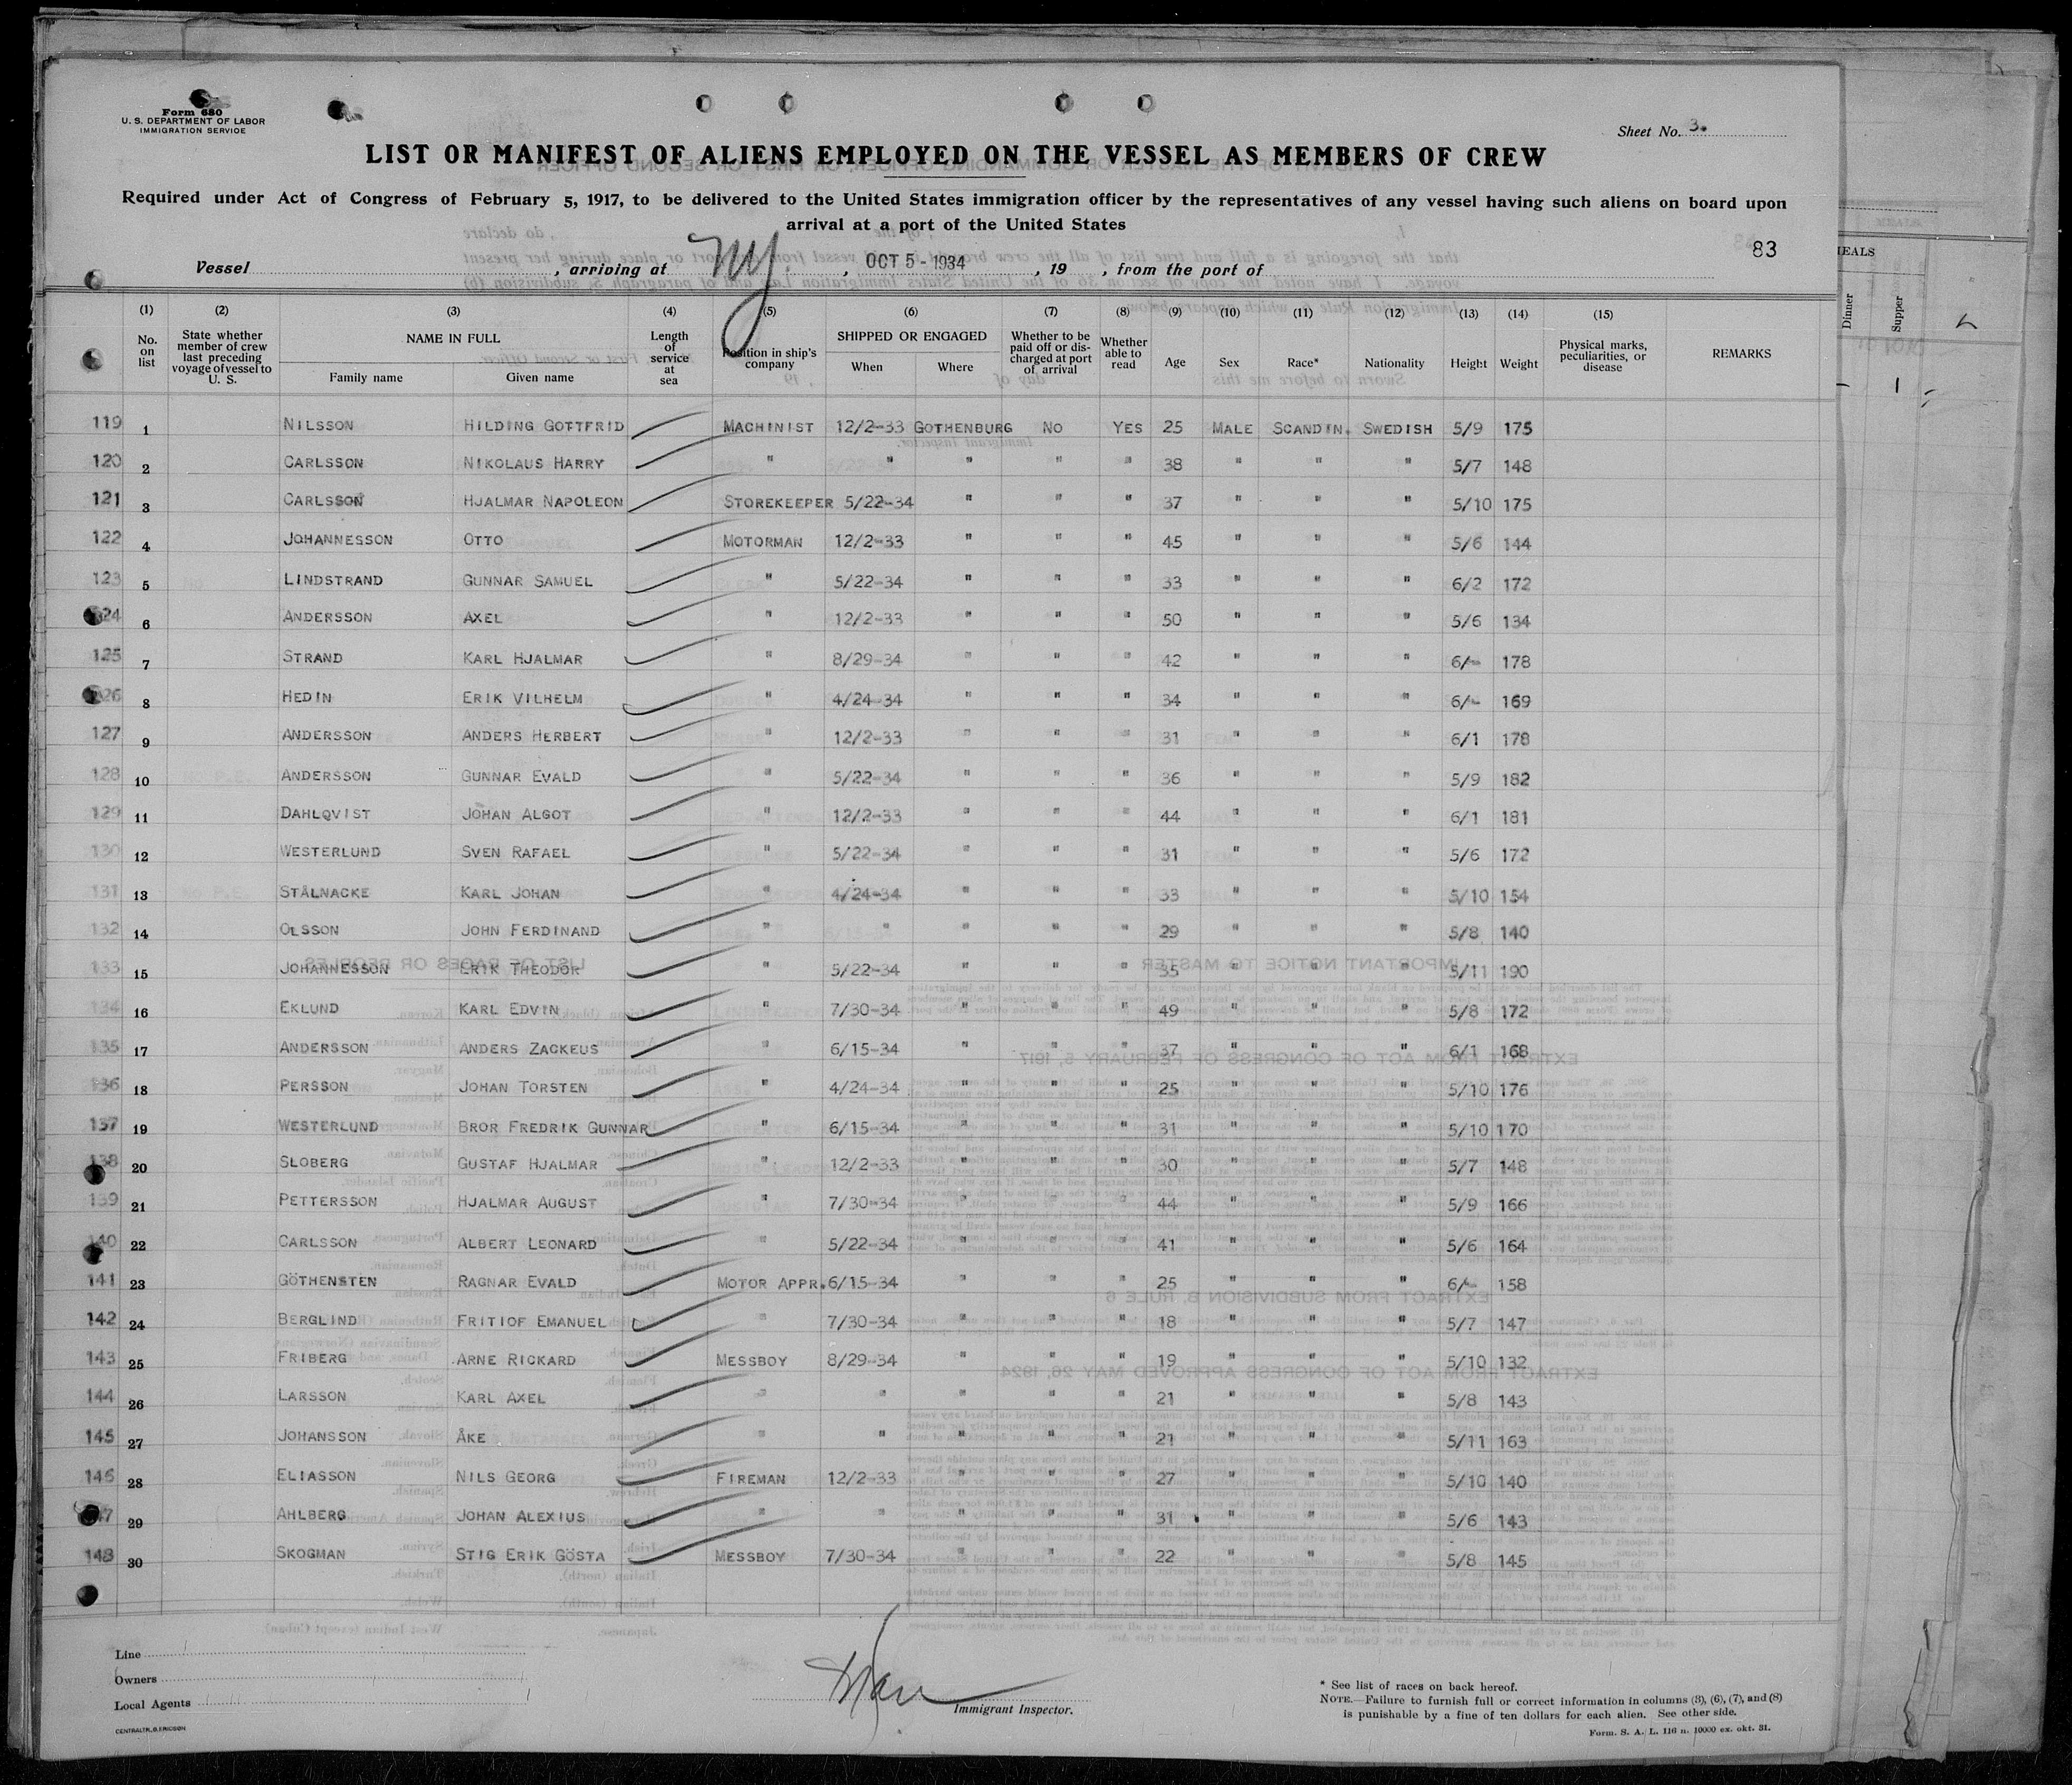 Form 680
U. S. DEPARTMENT OF LABOR
IMMIGRATION SERVICE
Sheet No. 3.
LIST OR MANIFEST OF ALIENS EMPLOYED ON THE VESSEL AS MEMBERS OF CREW
Required under Act of Congress of February 5, 1917, to be delivered to the United States immigration officer by the representatives of any vessel having such aliens on board upon
arrival at a port of the United States
83
Vessel , arriving at NY. , OCT 5 - 1934 , 19 , from the port of
(1) No. on list (2) State whether member of crew last preceding voyage of vessel to U. S. (3) NAME IN FULL Family name Given name (4) Length of service at sea (5) Position in ship's company (6) SHIPPED OR ENGAGED When Where (7) Whether to be paid off or discharged at port of arrival (8) Whether able to read (9) Age (10) Sex (11) Race* (12) Nationality (13) Height (14) Weight (15) Physical marks, peculiarities, or disease REMARKS
119 1 NILSSON HILDING GOTTFRID MACHINIST 12/2-33 GOTHENBURG NO YES 25 MALE SCANDIN. SWEDISH 5/9 175
120 2 CARLSSON NIKOLAUS HARRY " " " " " 38 " " " 5/7 148
121 3 CARLSSON HJALMAR NAPOLEON STOREKEEPER 5/22-34 " " " 37 " " " 5/10 175
122 4 JOHANNESSON OTTO MOTORMAN 12/2-33 " " " 45 " " " 5/6 144
123 5 LINDSTRAND GUNNAR SAMUEL " 5/22-34 " " " 33 " " " 6/2 172
124 6 ANDERSSON AXEL " 12/2-33 " " " 50 " " " 5/6 134
125 7 STRAND KARL HJALMAR " 8/29-34 " " " 42 " " " 6/- 178
126 8 HEDIN ERIK VILHELM " 4/24-34 " " " 34 " " " 6/- 169
127 9 ANDERSSON ANDERS HERBERT " 12/2-33 " " " 31 " " " 6/1 178
128 10 ANDERSSON GUNNAR EVALD " 5/22-34 " " " 36 " " " 5/9 182
129 11 DAHLQVIST JOHAN ALGOT " 12/2-33 " " " 44 " " " 6/1 181
130 12 WESTERLUND SVEN RAFAEL " 5/22-34 " " " 31 " " " 5/6 172
131 13 STÅLNACKE KARL JOHAN " 4/24-34 " " " 33 " " " 5/10 154
132 14 OLSSON JOHN FERDINAND " " " " " 29 " " " 5/8 140
133 15 JOHANNESSON ERIK THEODOR " 5/22-34 " " " 35 " " " 5/11 190
134 16 EKLUND KARL EDVIN " 7/30-34 " " " 49 " " " 5/8 172
135 17 ANDERSSON ANDERS ZACKEUS " 6/15-34 " " " 37 " " " 6/1 168
136 18 PERSSON JOHAN TORSTEN " 4/24-34 " " " 25 " " " 5/10 176
137 19 WESTERLUND BROR FREDRIK GUNNAR " 6/15-34 " " " 31 " " " 5/10 170
138 20 SLOBERG GUSTAF HJALMAR " 12/2-33 " " " 30 " " " 5/7 148
139 21 PETTERSSON HJALMAR AUGUST " 7/30-34 " " " 44 " " " 5/9 166
140 22 CARLSSON ALBERT LEONARD " 5/22-34 " " " 41 " " " 5/6 164
141 23 GÖTHENSTEN RAGNAR EVALD MOTOR APPR. 6/15-34 " " " 25 " " " 6/- 158
142 24 BERGLIND FRITIOF EMANUEL " 7/30-34 " " " 18 " " " 5/7 147
143 25 FRIBERG ARNE RICKARD MESSBOY 8/29-34 " " " 19 " " " 5/10 132
144 26 LARSSON KARL AXEL " " " " " 21 " " " 5/8 143
145 27 JOHANSSON ÅKE " " " " " 21 " " " 5/11 163
146 28 ELIASSON NILS GEORG FIREMAN 12/2-33 " " " 27 " " " 5/10 140
147 29 AHLBERG JOHAN ALEXIUS " " " " " 31 " " " 5/6 143
148 30 SKOGMAN STIG ERIK GÖSTA MESSBOY 7/30-34 " " " 22 " " " 5/8 145
Line
Owners
Local Agents
CENTRALTR. G. ERICSON
Immigrant Inspector.
* See list of races on back hereof.
NOTE.—Failure to furnish full or correct information in columns (3), (6), (7), and (8)
is punishable by a fine of ten dollars for each alien. See other side.
Form. S. A. L. 116 n. 10000 ex. okt. 31.
MEALS
Dinner
Supper